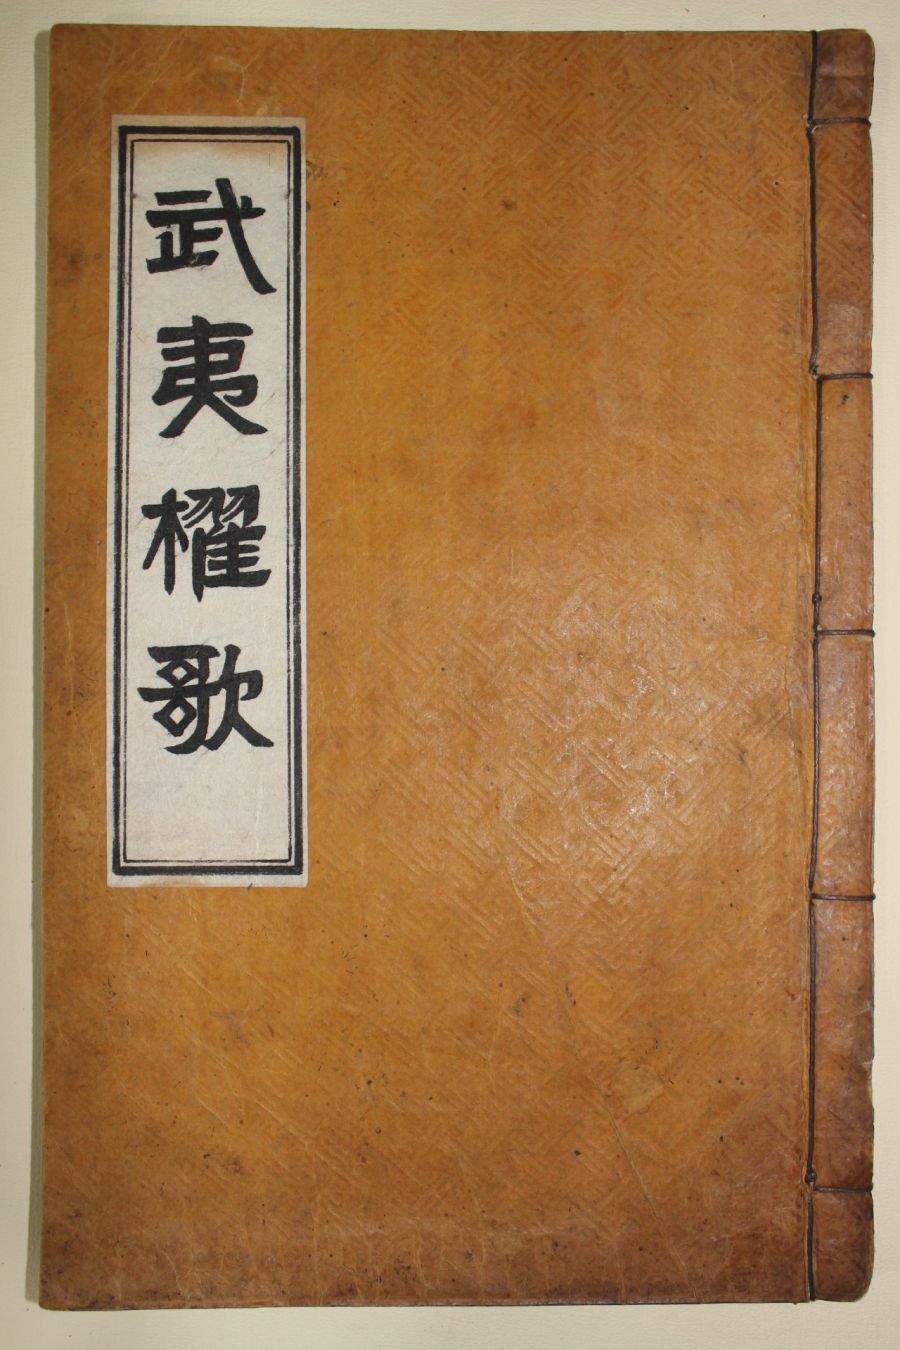 武夷櫂歌